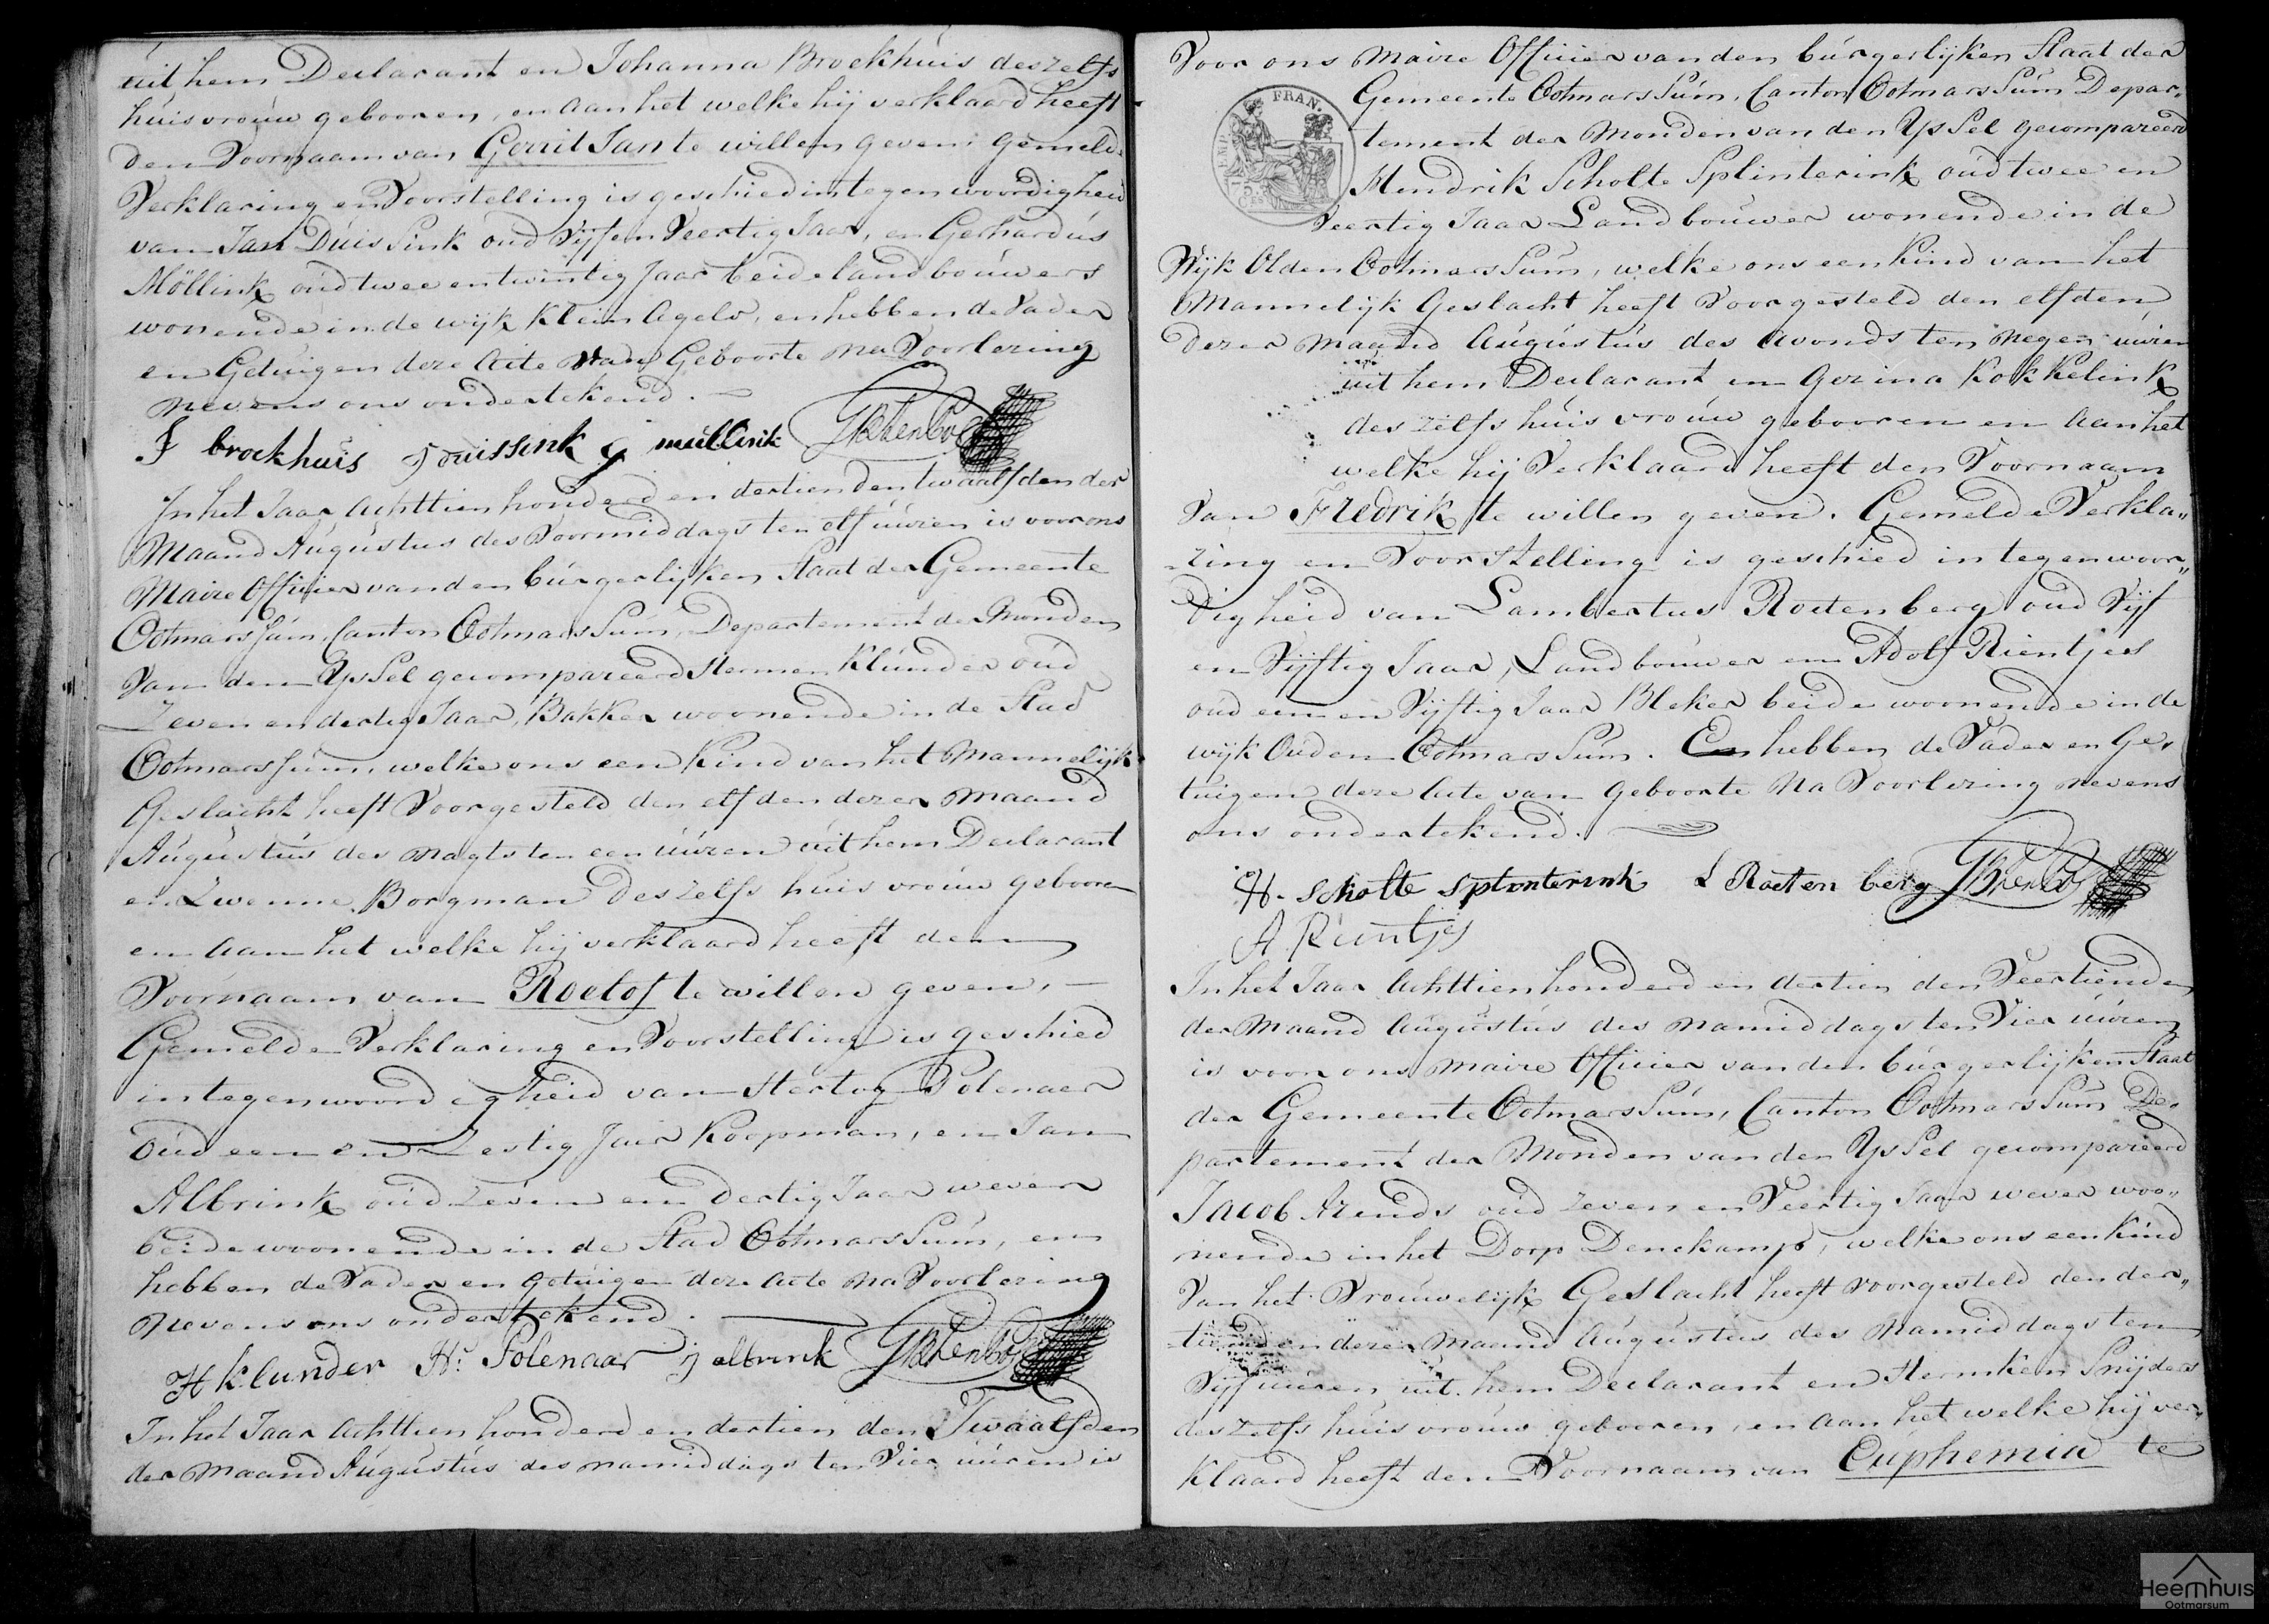 uit hem Declarant en Johanna Broekhuis deszelfs
huisvrouw gebooren, en aan het welke hij verklaard heeft
den Voornaam van Gerrit Jan te willen geven. Gemelde
Verklaring en Voorstelling is geschied in tegenwoordigheid
van Jan Duissink oud Vijf en Veertig Jaar, en Gerhardus
Möllink oud twee en twintig Jaar beide landbouwers
wonende in de wijk Klein Agelo, en hebben de Vader
en Getuigen deze Acte van Geboorte na Voorlezing
nevens ons ondertekend. —
J broekhuis J duissink g mullink
In het Jaar Achttien honderd en dertien den twaalfden der
Maand Augustus des Voormiddags ten elf uuren is voor ons
Maire Officier van den burgerlijken Staat der Gemeente
Ootmarssum, Canton Ootmarssum, Departement der Monden
Van den Yssel gecompareerd Hermen Klunder oud
Zeven en dertig Jaar, Bakker woonende in de Stad
Ootmarssum, welke ons een Kind van het Mannelijk
Geslacht heeft Voorgesteld den elfden dezer Maand
Augustus des Nagts ten een uuren uit hem Declarant
en Zwenne Borgman deszelfs huisvrouw gebooren
en aan het welke hij verklaard heeft den
Voornaam van Roelof te willen geven. —
Gemelde Verklaring en Voorstelling is geschied
in tegenwoordigheid van Hertog Polenaer
oud een en Zestig Jaar Koopman, en Jan
Albrink oud zeven en dertig Jaar wever
beide woonende in de Stad Ootmarssum, en
hebben de Vader en Getuigen deze Acte Na Voorlezing
Nevens ons ondertekend.
H klunder Hs Polenaar J albrink
In het Jaar Achttien honderd en dertien den Twaalfden
der Maand Augustus des namiddags ten Vier uuren is
Voor ons Maire Officier van den burgerlijken Staat der
FRAN.
75
Gemeente Ootmarssum, Canton Ootmarssum Depar„
tement der Monden van den Yssel gecompareerd
Hendrik Scholte Splinterink oud twee en
Veertig Jaar Landbouwer wonende in de
Wijk Olden Ootmarssum, welke ons een Kind van het
Mannelijk Geslacht heeft Voorgesteld den elfden
dezer Maand Augustus des Avonds ten Negen uuren
uit hem Declarant en Gezina Kokkelink
deszelfs huisvrouw gebooren en aan het
welke hij Verklaard heeft den Voornaam
Van Fredrik te willen geven. Gemelde Verkla„
ring en Voorstelling is geschied in tegenwoor„
digheid van Lambertus Roetenberg oud Vijf
en Vijftig Jaar, Landbouwer en Adolf Rientjes
oud een en Vijftig Jaar Bleker beide woonende in de
wijk Ouden Ootmarssum. En hebben de Vader en Ge„
tuigen deze Acte van Geboorte Na Voorlezing nevens
ons ondertekend.
H. Scholte Splinterink L Roeten berg
A Rientjes
In het Jaar Achttienhonderd en dertien den Veertienden
der Maand Augustus des namiddags ten Vier uuren
is voor ons Maire Officier van den burgerlijken Staat
der Gemeente Ootmarssum, Canton Ootmarssum De„
partement der Monden van den Yssel gecompareerd
Jacob Arends oud zeven en Veertig Jaar wever woo„
nende in het Dorp Denekamp, welke ons een Kind
Van het Vrouwelijk Geslacht heeft voorgesteld den der„
tienden dezer Maand Augustus des Namiddags ten
Vijf uuren uit hem Declarant en Hermken Snijders
deszelfs huisvrouw gebooren, en aan het welke hij ver„
Klaard heeft den Voornaam van Euphemia te
Heemhuis
Ootmarsum